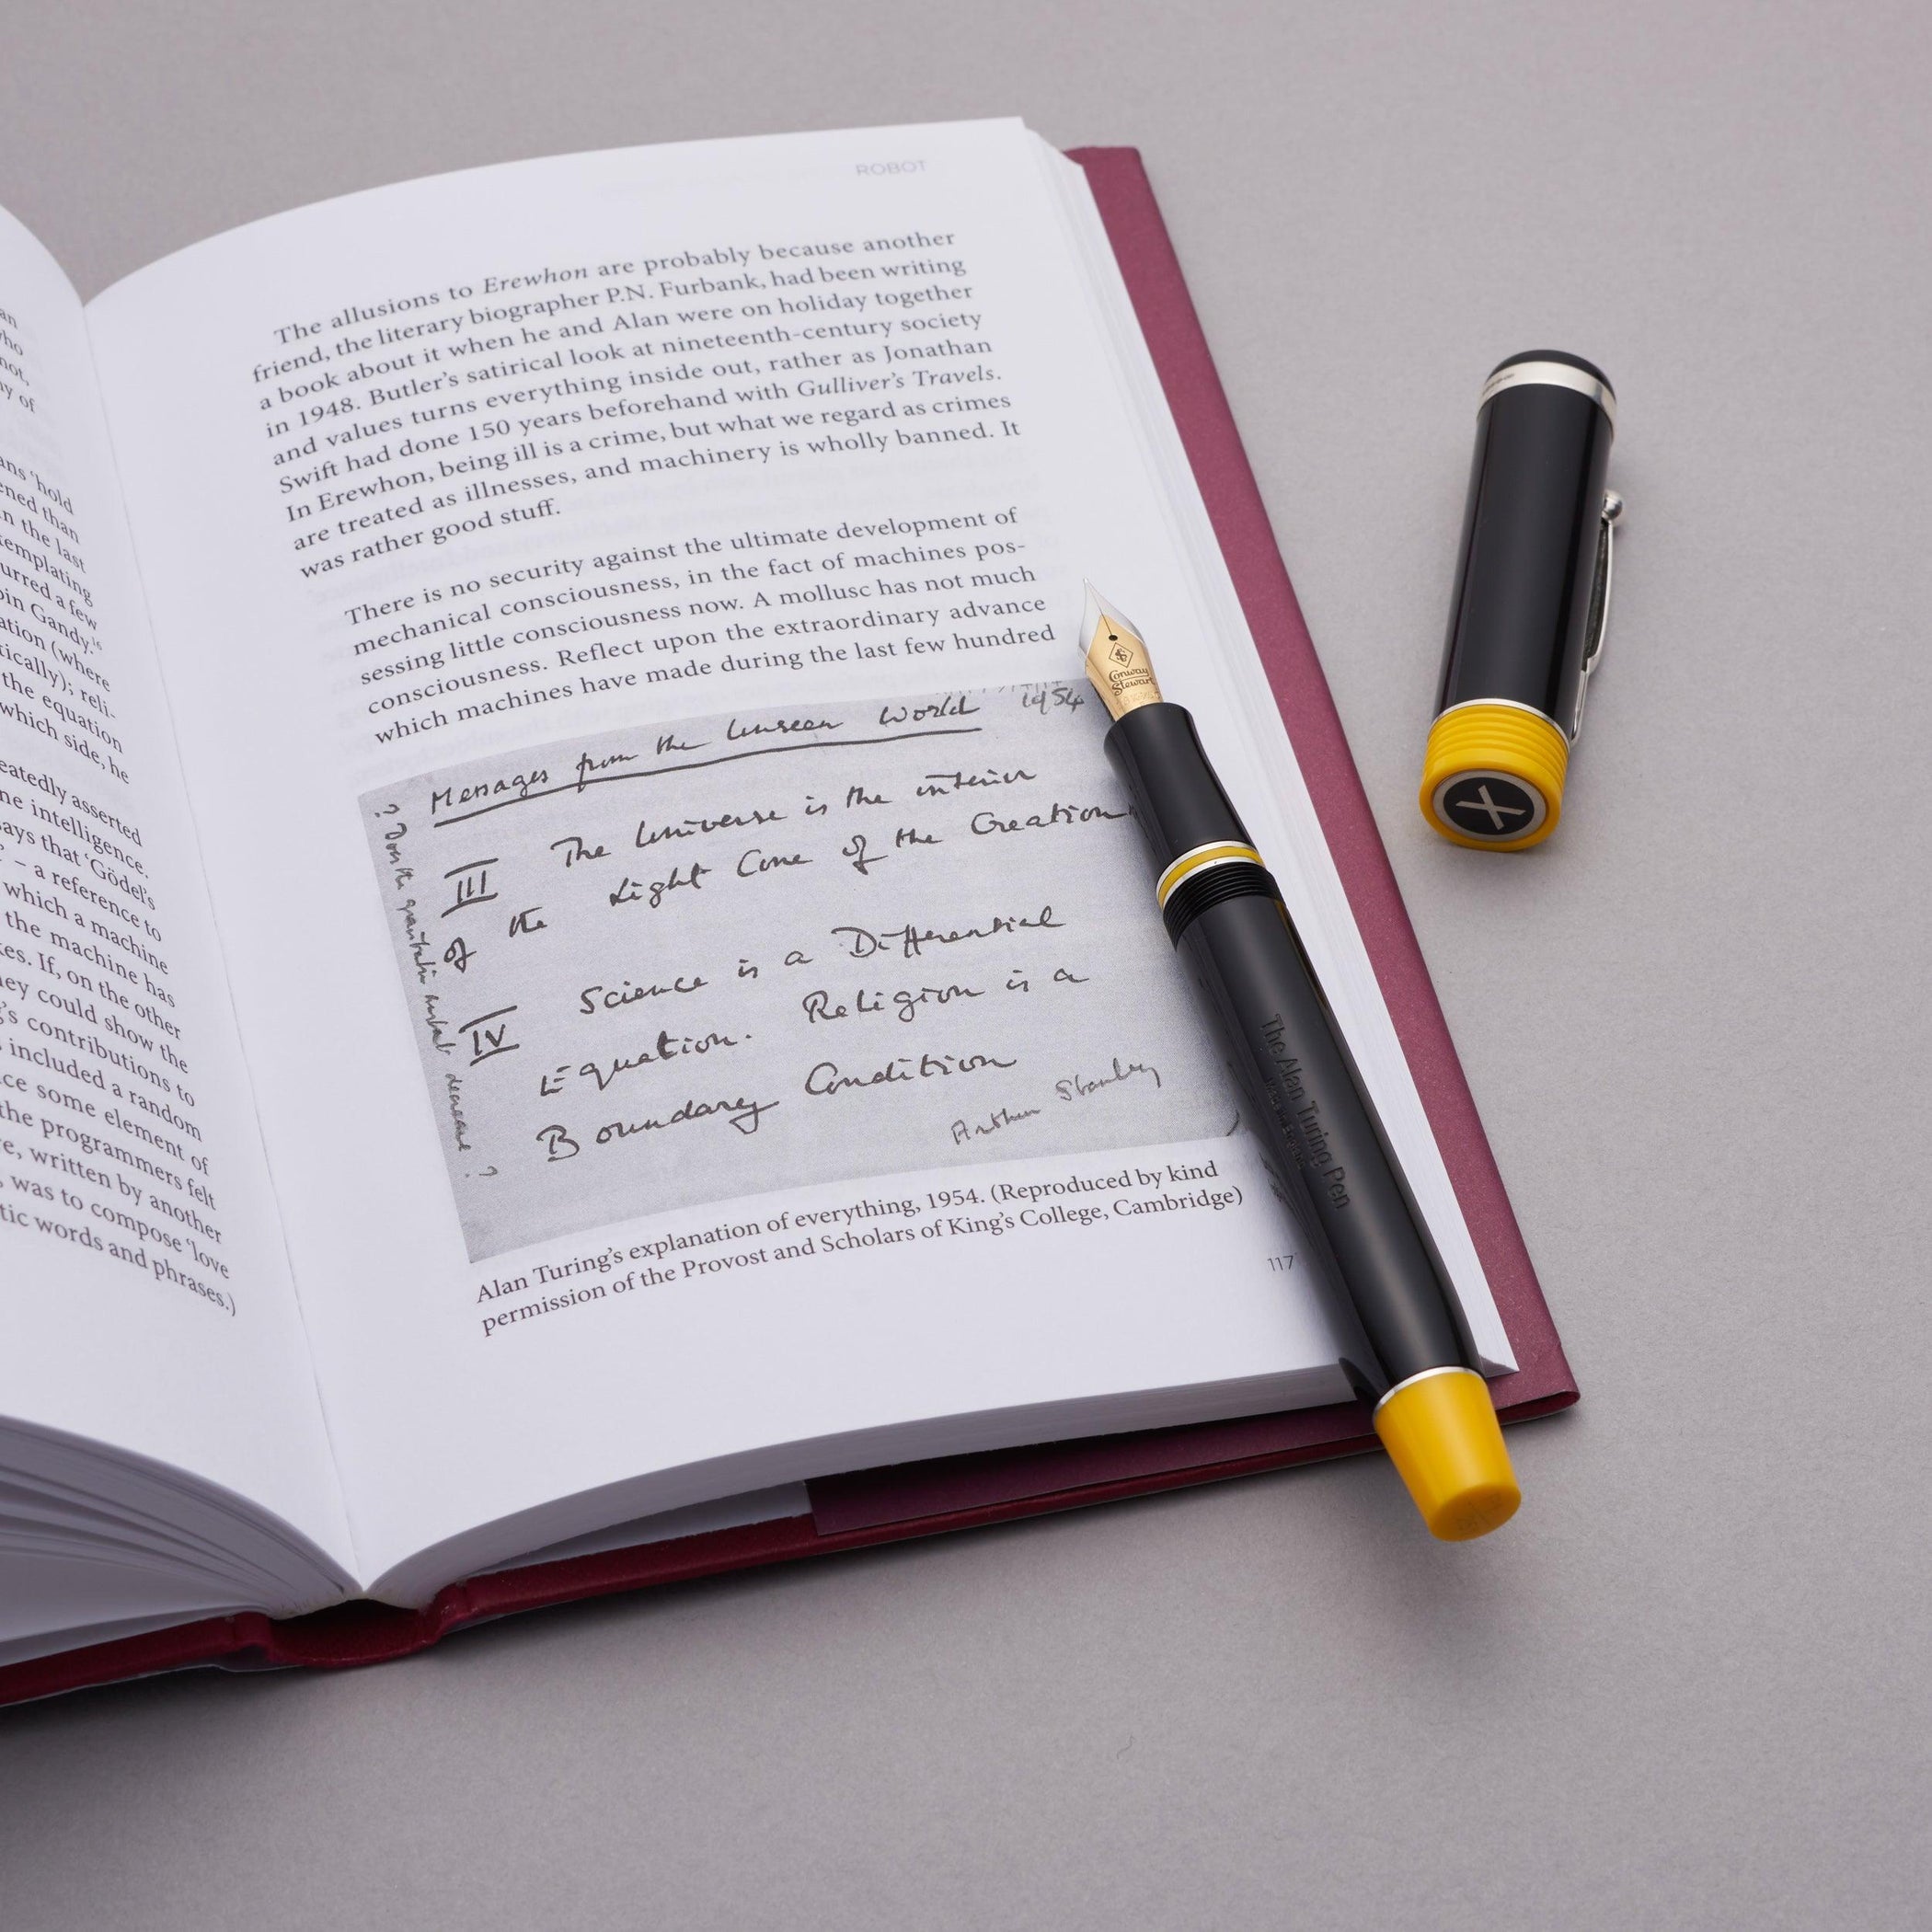 an
who
not,
ny of
ans 'hold
ened than
n the last
templating
urred a few
bin Gandy.16
ation (where
tically); reli-
the equation
which side, he
eatedly asserted
ne intelligence.
says that 'Gödel's
– a reference to
which a machine
the machine has
kes. If, on the other
ney could show the
g's contributions to
included a random
ce some element of
the programmers felt
re, written by another
, was to compose 'love
tic words and phrases.)
ROBOT
The allusions to Erewhon are probably because another
friend, the literary biographer P.N. Furbank, had been writing
a book about it when he and Alan were on holiday together
in 1948. Butler's satirical look at nineteenth-century society
and values turns everything inside out, rather as Jonathan
Swift had done 150 years beforehand with Gulliver's Travels.
In Erewhon, being ill is a crime, but what we regard as crimes
are treated as illnesses, and machinery is wholly banned. It
was rather good stuff.
There is no security against the ultimate development of
mechanical consciousness, in the fact of machines pos-
sessing little consciousness now. A mollusc has not much
consciousness. Reflect upon the extraordinary advance
which machines have made during the last few hundred
Messages from the Unseen World 1954
III The Universe is the interior
of the Light Cone of the Creation
IV Science is a Differential
Equation. Religion is a
Boundary Condition
Arthur Stanley
? Does the gravitation constant decrease ?
Alan Turing's explanation of everything, 1954. (Reproduced by kind
permission of the Provost and Scholars of King's College, Cambridge)
117
Conway
Stewart
The Alan Turing Pen
X